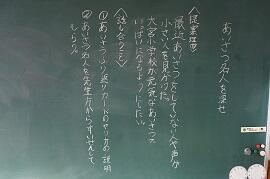 あいさつ名人を探せ
〈提案理由〉
最近あいさつをしていない人や声が
小さい人を見かけた。
大宮小学校が元気なあいさつで
いっぱいになるようにしたい。
〈話し合うこと〉
①あいさつふり返りカードのやり方の説明
②あいさつ名人を先生方からすいせんして
もらう